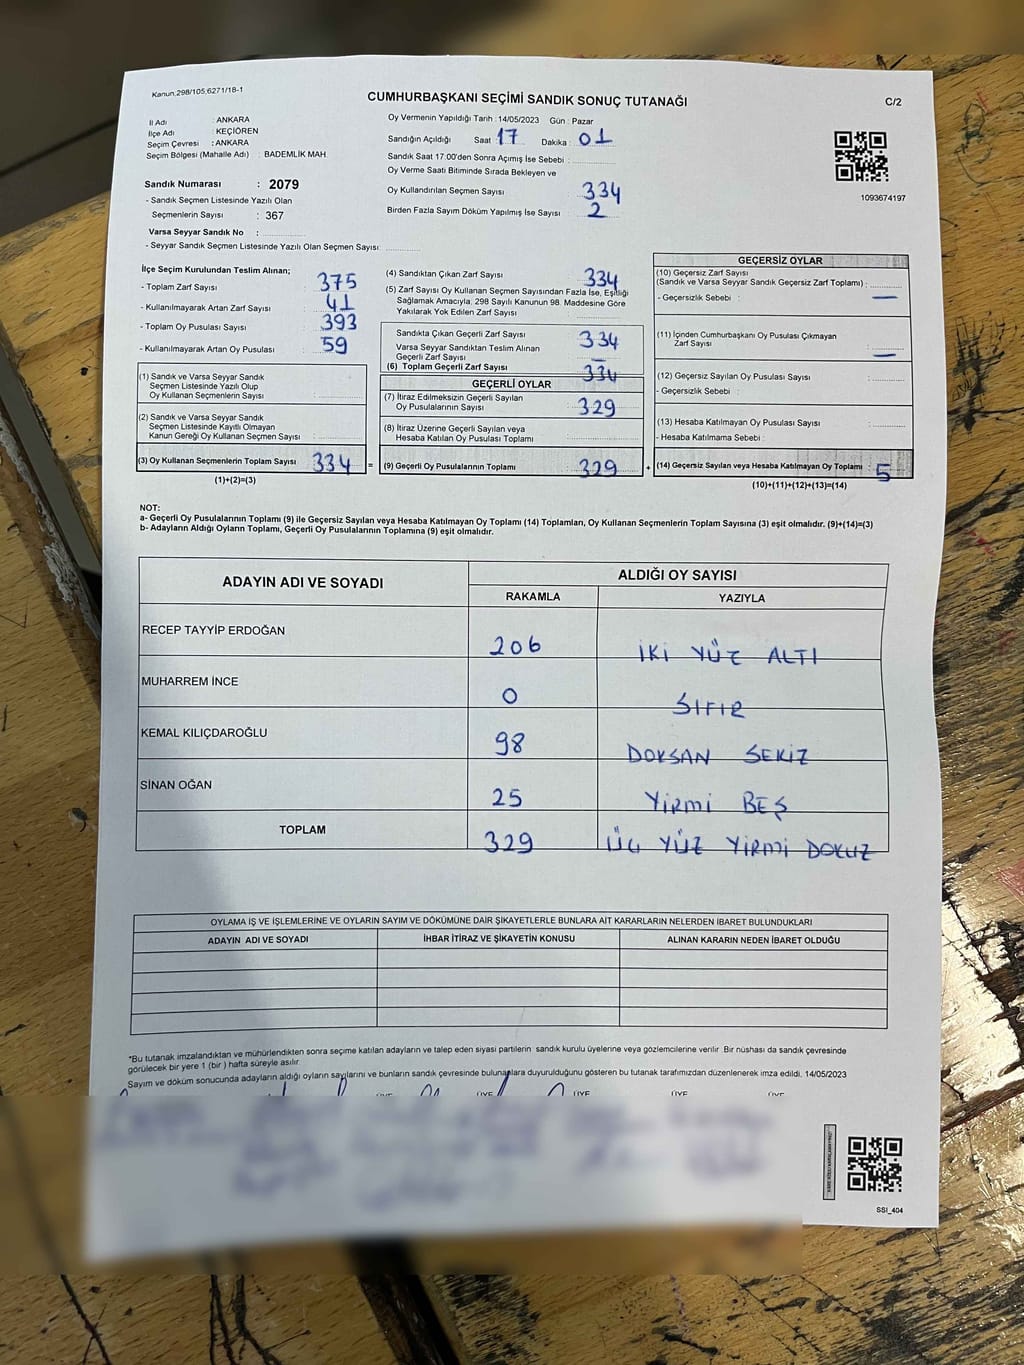 Kanun:298/105,6271/18-1
CUMHURBAŞKANI SEÇİMİ SANDIK SONUÇ TUTANAĞI
C/2
İl Adı : ANKARA
İlçe Adı : KEÇİÖREN
Seçim Çevresi : ANKARA
Seçim Bölgesi (Mahalle Adı) : BADEMLİK MAH.
Sandık Numarası : 2079
- Sandık Seçmen Listesinde Yazılı Olan
Seçmenlerin Sayısı : 367
Varsa Seyyar Sandık No :
- Seyyar Sandık Seçmen Listesinde Yazılı Olan Seçmen Sayısı:
Oy Vermenin Yapıldığı Tarih : 14/05/2023 Gün : Pazar
Sandığın Açıldığı Saat 17 Dakika : 01
Sandık Saat 17:00'den Sonra Açımış İse Sebebi :
Oy Verme Saati Bitiminde Sırada Bekleyen ve
Oy Kullandırılan Seçmen Sayısı 334
Birden Fazla Sayım Döküm Yapılmış İse Sayısı 2
1093674197
İlçe Seçim Kurulundan Teslim Alınan;
- Toplam Zarf Sayısı 375
- Kullanılmayarak Artan Zarf Sayısı 41
- Toplam Oy Pusulası Sayısı 393
- Kullanılmayarak Artan Oy Pusulası 59
(1) Sandık ve Varsa Seyyar Sandık
Seçmen Listesinde Yazılı Olup
Oy Kullanan Seçmenlerin Sayısı :
(2) Sandık ve Varsa Seyyar Sandık
Seçmen Listesinde Kayıtlı Olmayan
Kanun Gereği Oy Kullanan Seçmen Sayısı :
(3) Oy Kullanan Seçmenlerin Toplam Sayısı 334
(1)+(2)=(3)
(4) Sandıktan Çıkan Zarf Sayısı 334
(5) Zarf Sayısı Oy Kullanan Seçmen Sayısından Fazla İse, Eşitliği
Sağlamak Amacıyla, 298 Sayılı Kanunun 98. Maddesine Göre
Yakılarak Yok Edilen Zarf Sayısı :
Sandıkta Çıkan Geçerli Zarf Sayısı 334
Varsa Seyyar Sandıktan Teslim Alınan
Geçerli Zarf Sayısı —
(6) Toplam Geçerli Zarf Sayısı 334
GEÇERLİ OYLAR
(7) İtiraz Edilmeksizin Geçerli Sayılan
Oy Pusulalarının Sayısı 329
(8) İtiraz Üzerine Geçerli Sayılan veya
Hesaba Katılan Oy Pusulası Toplamı
= (9) Geçerli Oy Pusulalarının Toplamı 329 +
GEÇERSİZ OYLAR
(10) Geçersiz Zarf Sayısı
(Sandık ve Varsa Seyyar Sandık Geçersiz Zarf Toplamı) :
- Geçersizlik Sebebi : —
(11) İçinden Cumhurbaşkanı Oy Pusulası Çıkmayan
Zarf Sayısı : —
(12) Geçersiz Sayılan Oy Pusulası Sayısı :
- Geçersizlik Sebebi :
(13) Hesaba Katılmayan Oy Pusulası Sayısı :
- Hesaba Katılmama Sebebi :
(14) Geçersiz Sayılan veya Hesaba Katılmayan Oy Toplamı : 5
(10)+(11)+(12)+(13)=(14)
NOT:
a- Geçerli Oy Pusulalarının Toplamı (9) ile Geçersiz Sayılan veya Hesaba Katılmayan Oy Toplamı (14) Toplamları, Oy Kullanan Seçmenlerin Toplam Sayısına (3) eşit olmalıdır. (9)+(14)=(3)
b- Adayların Aldığı Oyların Toplamı, Geçerli Oy Pusulalarının Toplamına (9) eşit olmalıdır.
ADAYIN ADI VE SOYADI
ALDIĞI OY SAYISI
RAKAMLA YAZIYLA
RECEP TAYYİP ERDOĞAN 206 İKİ YÜZ ALTI
MUHARREM İNCE 0 SIFIR
KEMAL KILIÇDAROĞLU 98 DOKSAN SEKİZ
SİNAN OĞAN 25 YİRMİ BEŞ
TOPLAM 329 ÜÇ YÜZ YİRMİ DOKUZ
OYLAMA İŞ VE İŞLEMLERİNE VE OYLARIN SAYIM VE DÖKÜMÜNE DAİR ŞİKAYETLERLE BUNLARA AİT KARARLARIN NELERDEN İBARET BULUNDUKLARI
ADAYIN ADI VE SOYADI İHBAR İTİRAZ VE ŞİKAYETİN KONUSU ALINAN KARARIN NEDEN İBARET OLDUĞU
*Bu tutanak imzalandıktan ve mühürlendikten sonra seçime katılan adayların ve talep eden siyasi partilerin sandık kurulu üyelerine veya gözlemcilerine verilir. Bir nüshası da sandık çevresinde
görülecek bir yere 1 (bir) hafta süreyle asılır.
Sayım ve döküm sonucunda adayların aldığı oyların sayılarını ve bunların sandık çevresinde bulunanlara duyurulduğunu gösteren bu tutanak tarafımızdan düzenlenerek imza edildi. 14/05/2023
ÜYE ÜYE ÜYE ÜYE ÜYE
SSI_404